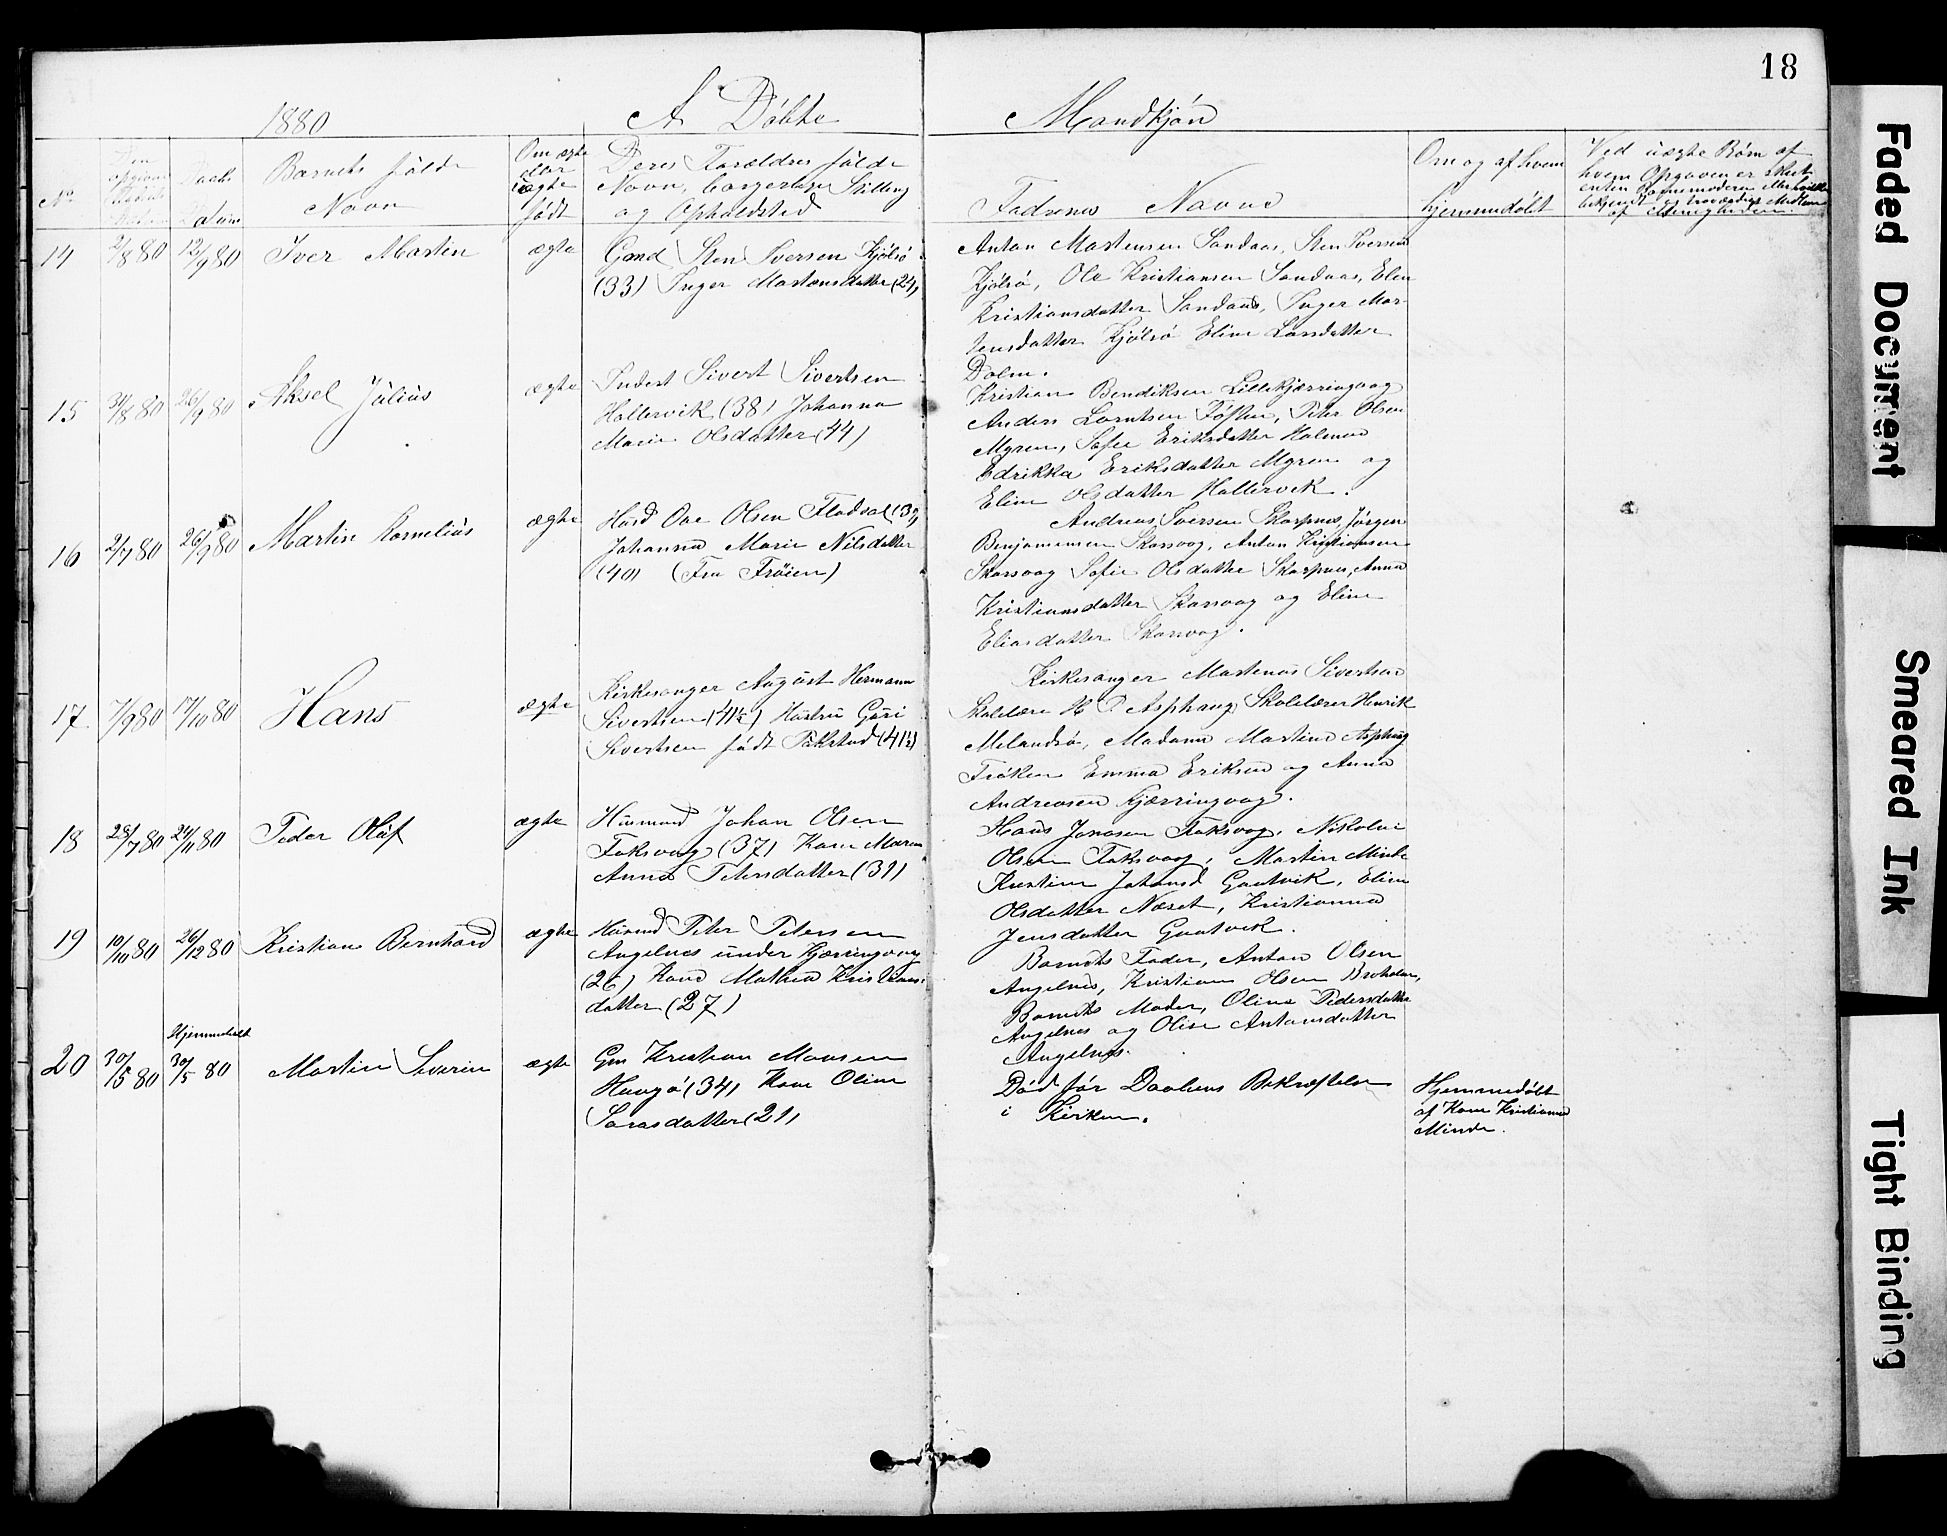 18
1880 A Døbte Mandkjøn
No
Daabs Datum
Barnets fulde Navn
Om ægte eller uægte født
Deres Forældres fulde
Navn, Borgerlige Stilling
og Opholdsted
Faderes Navne
Om og af hvem
hjemmedøbt
Ved uægte Børn af
hvem Opgaven er skeet
enten Barnemoderen eller hvilke
bekjendt og troværdige Medlem
af Menigheden.
14 2/8 80 12/9 80 Iver Martin ægte
Gmd Sten Iversen Kjølsø
(33) Inger Martensdatter (24)
Anton Martensen Sandaas, Sten Iversen
Kjølsø, Ole Kristiansen Sandaas, Elen
Kristiansdatter Sandaas, Inger Mar-
tensdatter Kjølsø Eline Larsdatter
Dolm.
15 31/8 80 26/9 80 Aksel Julius ægte
Inderst Sivert Sivertsen
Hallervik (38) Johanna
Marie Olsdatter (44)
Kristian Bendiksen Lillekjærringvaag
Anders Larntsen Tøften, Peter Olsen
Myren, Sofie Eriksdatter Holmen
Edrikka Eriksdatter Myren og
Eline Olsdatter Hallervik.
16 2/7 80 26/9 80 Martin Kornelius ægte
Husd Ove Olsen Fladval (39)
Johanna Marie Nilsdatter
(40) (Fra Frøien)
Andreas Iversen Skarpnes, Jørgen
Benjaminsen Skarsvaag, Anton Kristiansen
Skarsvaag Sofie Olsdatter Skarpnes, Anna
Kristiansdatter Skarsvaag og Eline
Eliasdatter Skarsvaag.
17 7/9 80 17/10 80 Hans ægte
Kirkesanger August Hermann
Sivertsen (41½) Hustru Guri
Sivertsen født Pakstad (41½)
Kirkesanger Martenus Sivertsen
Skolelære H P Asphaug, Skolelærer Henrik
Melandsø, Madame Martine Asphaug
Frøken Emma Eriksen og Anna
Andreasen Kjærringvaag.
18 28/7 80 21/11 80 Peder Oluf ægte
Husmand Johan Olsen
Faksvaag (37) Kone Maren
Anna Petersdatter (39)
Hans Jonasen Faksvaag, Nikolai
Olsen Faksvaag, Martin Minde
Kristine Johansd Gautvik, Eline
Olsdatter Næset, Kristianna
Jensdatter Gautvik.
19 10/10 80 26/12 80 Kristian Bernhard ægte
Husmd Peter Petersen
Angelnes under Kjærringvaag
(26) Kone Mathea Kristians-
datter (27)
Barnets Fader, Anton Olsen
Angelnes, Kristian Olsen Breholm,
Barnets Moder, Olina Pedersdatter
Angelnes og Olise Antonsdatter
Angelnes.
Hjemmedøbt
20 30/5 80 30/5 80 Martin Severin ægte
Gm Kristian Monsen
Haugø (34) Kone Oline
Larsdatter (21)
Død før Daabens Bekræftelse
i Kirken.
Hjemmedøbt
af Kone Kristianna
Minde.
Faded Document
Smeared Ink
Tight Binding